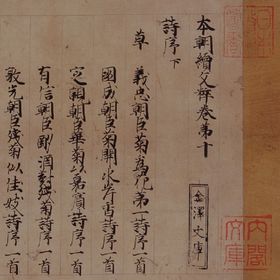 本朝續文粹卷第十
詩序下
草
義忠朝臣菊為花第一詩序一首
國成朝臣菊開水岸香詩序一首
定朝臣華菊以嘉賓詩序一首
有信朝臣剛酒對殘菊詩序一首
敦光朝臣殘菊似佳妓詩序一首
金澤文庫
内閣文庫